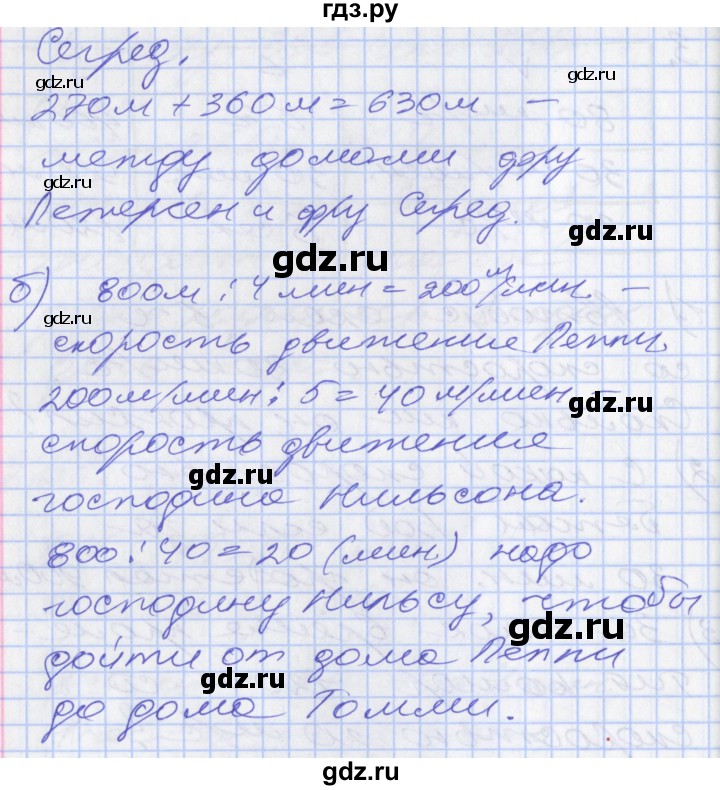 гдз.ру
Сегред.
gdz.ru
270м + 360м = 630м —
между домами фру
gdz.ru
Петерсен и фру Сегред.
gdz.ru
gdz.ru
б) 800м : 4 мин = 200 м/мин. —
gdz.ru
скорость движения Пеппи.
200м/мин : 5 = 40 м/мин —
gdz.ru
скорость движения
gdz.ru
господина Нильсона.
800 : 40 = 20 (мин) надо
господину Нильсу, чтобы
gdz.ru
дойти от дома Пеппи
gdz.ru
до дома Томми.
gdz.ru
gdz.ru